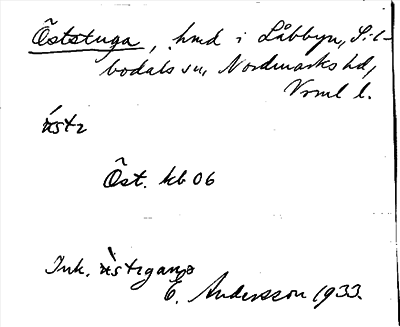 Öststuga, hmd i Låbbyn, Sil-
bodals sn, Nordmarks hd,
Vrml l.
Öst. kb 06
Ink.
E. Andersson 1933.